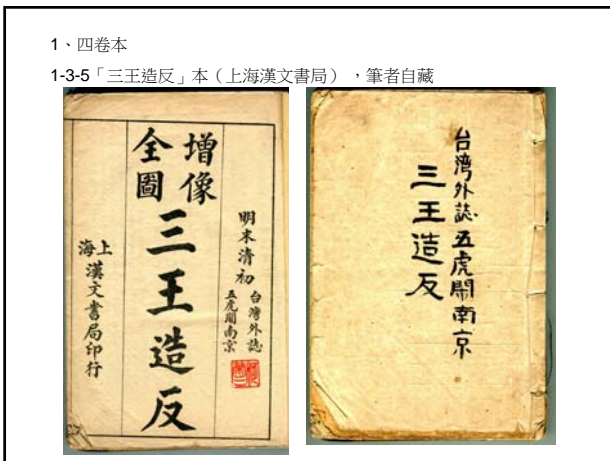 1、四卷本
1-3-5「三王造反」本（上海漢文書局），筆者自藏
明末清初
台灣外誌
五虎閙南京
增像
全圖
三王造反
上海
漢文書局印行
台湾外誌五虎閙南京
三王造反